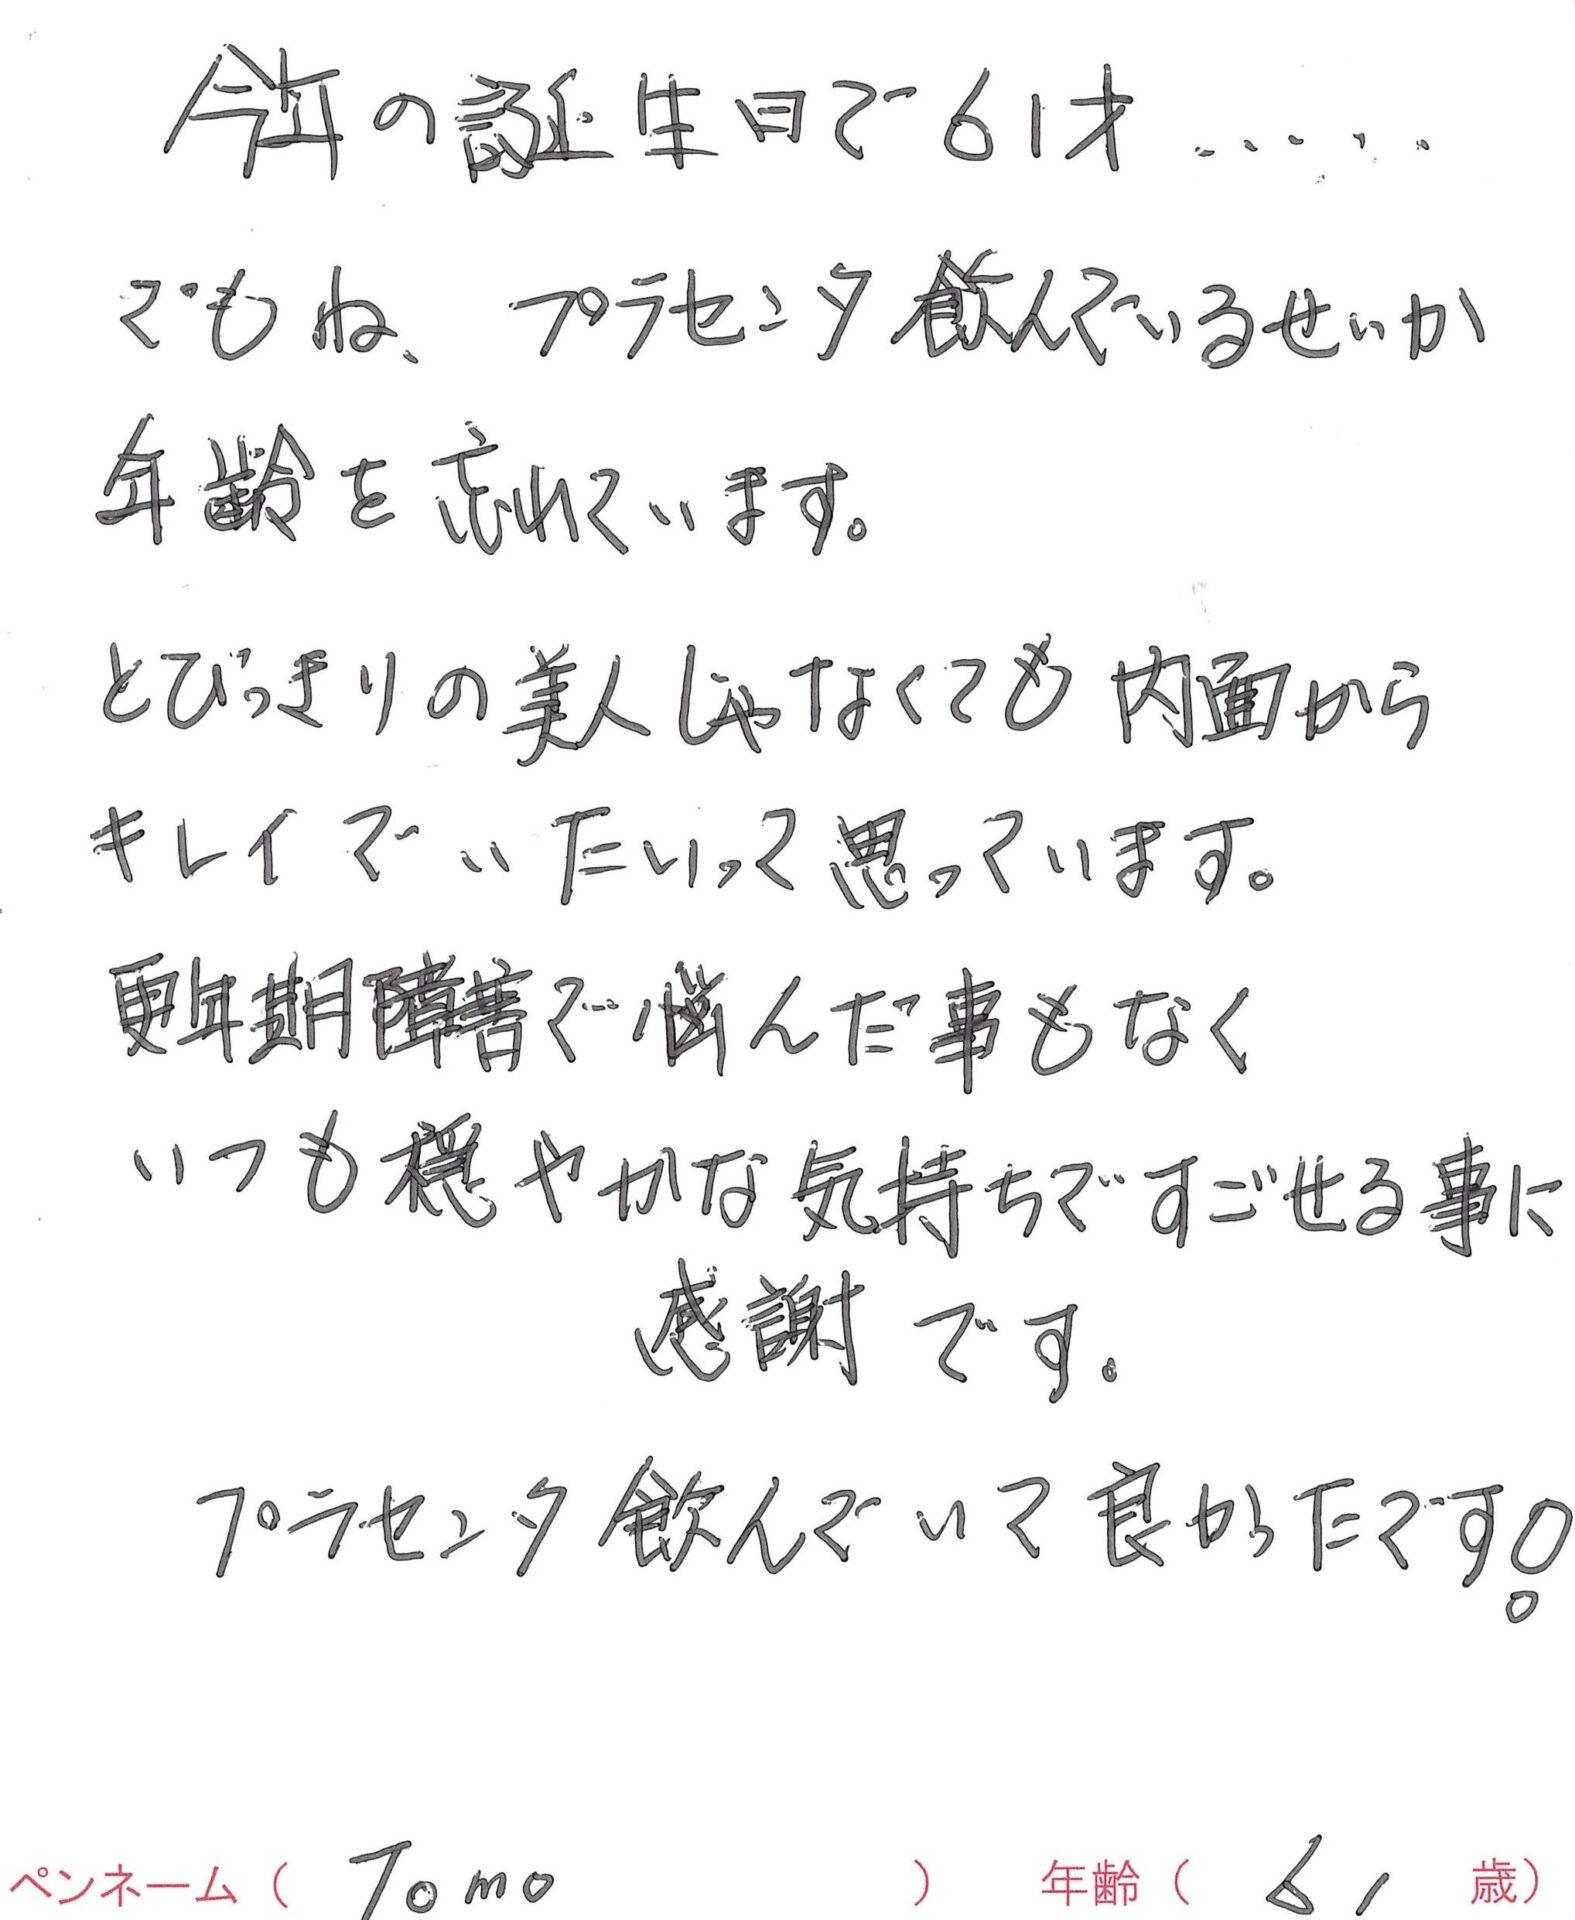 今年の誕生日で61才‥‥‥
でもね、プラセンタ飲んでいるせいか
年齢を忘れています。
とびっきりの美人じゃなくても内面から
キレイでいたいって思っています。
更年期障害で悩んだ事もなく
いつも穏やかな気持ちですごせる事に
感謝です。
プラセンタ飲んでいて良かったです!
ペンネーム(Tomo) 年齢(61歳)